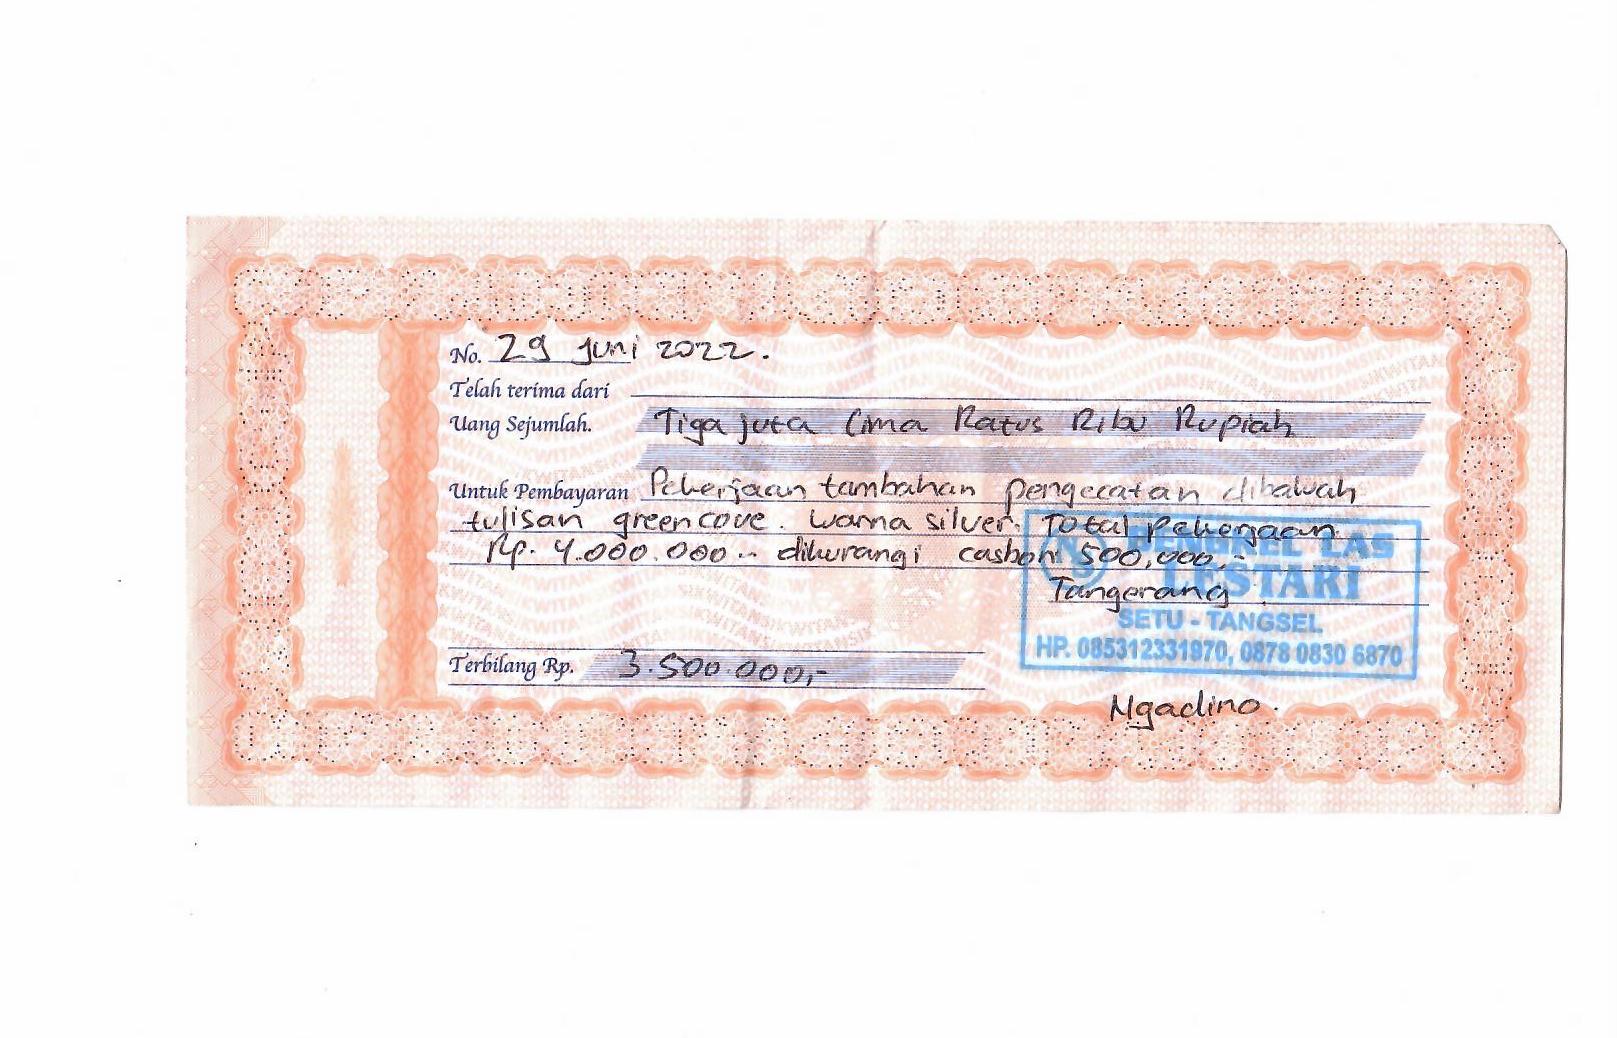 No. 29 Juni 2022.
Telah terima dari
Uang Sejumlah. Tiga juta lima Ratus Ribu Rupiah
Untuk Pembayaran Pekerjaan tambahan pengecatan dibawah
tulisan greencove. warna silver. Total pekerjaan
Rp. 4.000.000.- dikurangi casbon 500,000,-
BENGKEL LAS
LESTARI
Tangerang
SETU - TANGSEL
HP. 085312331970, 0878 0830 6870
Terbilang Rp. 3.500.000,-
Ngadino.